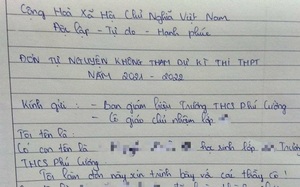 Cộng Hoà Xã Hội Chủ Nghĩa Việt Nam
Độc lập - Tự do - Hạnh phúc
ĐƠN TỰ NGUYỆN KHÔNG THAM DỰ KÌ THI THPT
NĂM 2021 - 2022
Kính gửi : - Ban giám hiệu Trường THCS Phú Cường
- Cô giáo chủ nhiệm lớp
Tôi tên là :
Có con tên là : học sinh lớp Trường
THCS Phú Cường
Tôi làm đơn này xin trình bày và cái thầy cô !